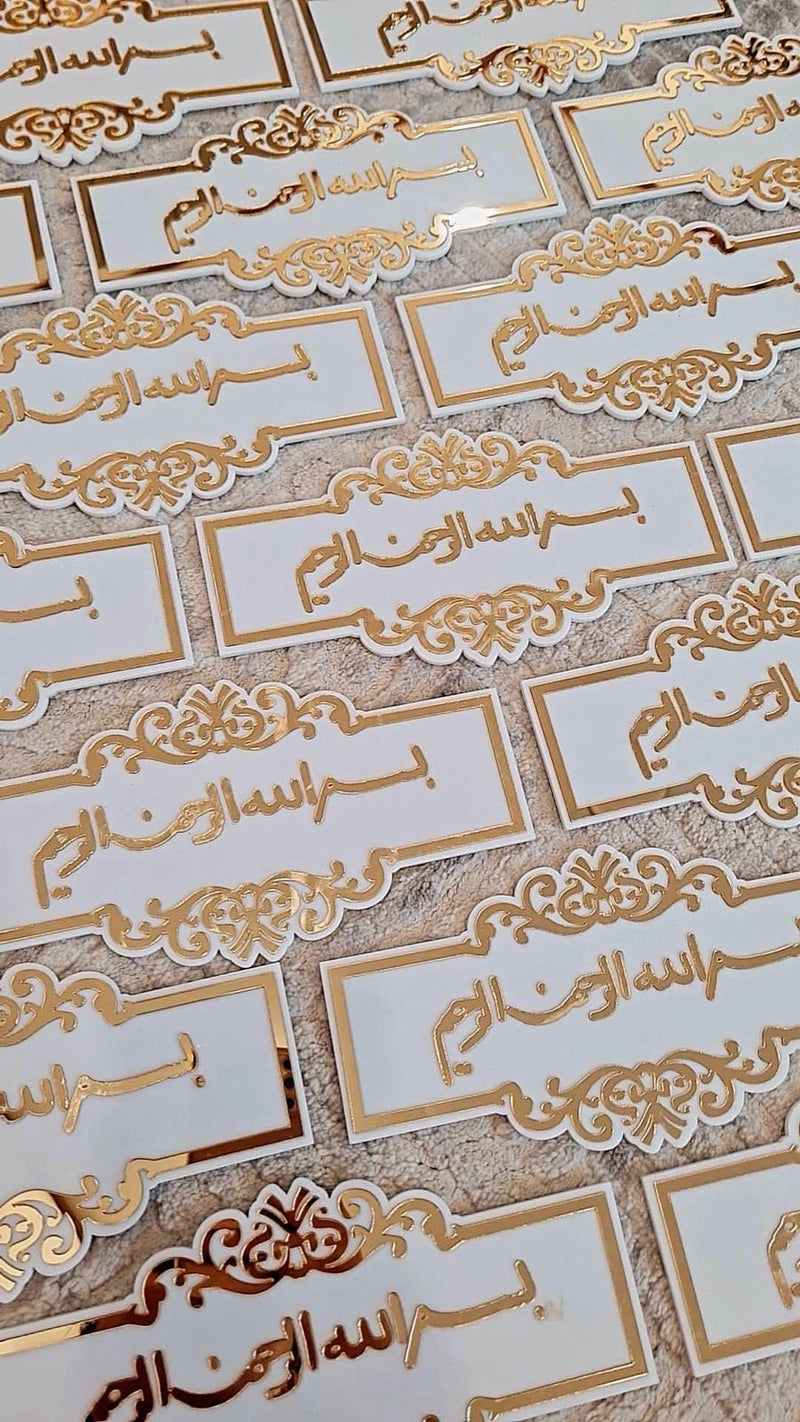 بسم الله الرحمن الرحيم
بسم الله الرحمن الرحيم
بسم الله الرحمن الرحيم
بسم الله الرحمن الرحيم
بسم الله الرحمن الرحيم
بسم الله الرحمن الرحيم
بسم الله الرحمن الرحيم
بسم الله الرحمن الرحيم
بسم
بسم الله الرحمن الرحيم
بسم الله الرحمن الرحيم
بسم الله الرحمن الرحيم
بسم الله
بسم الله الرحمن الرحيم